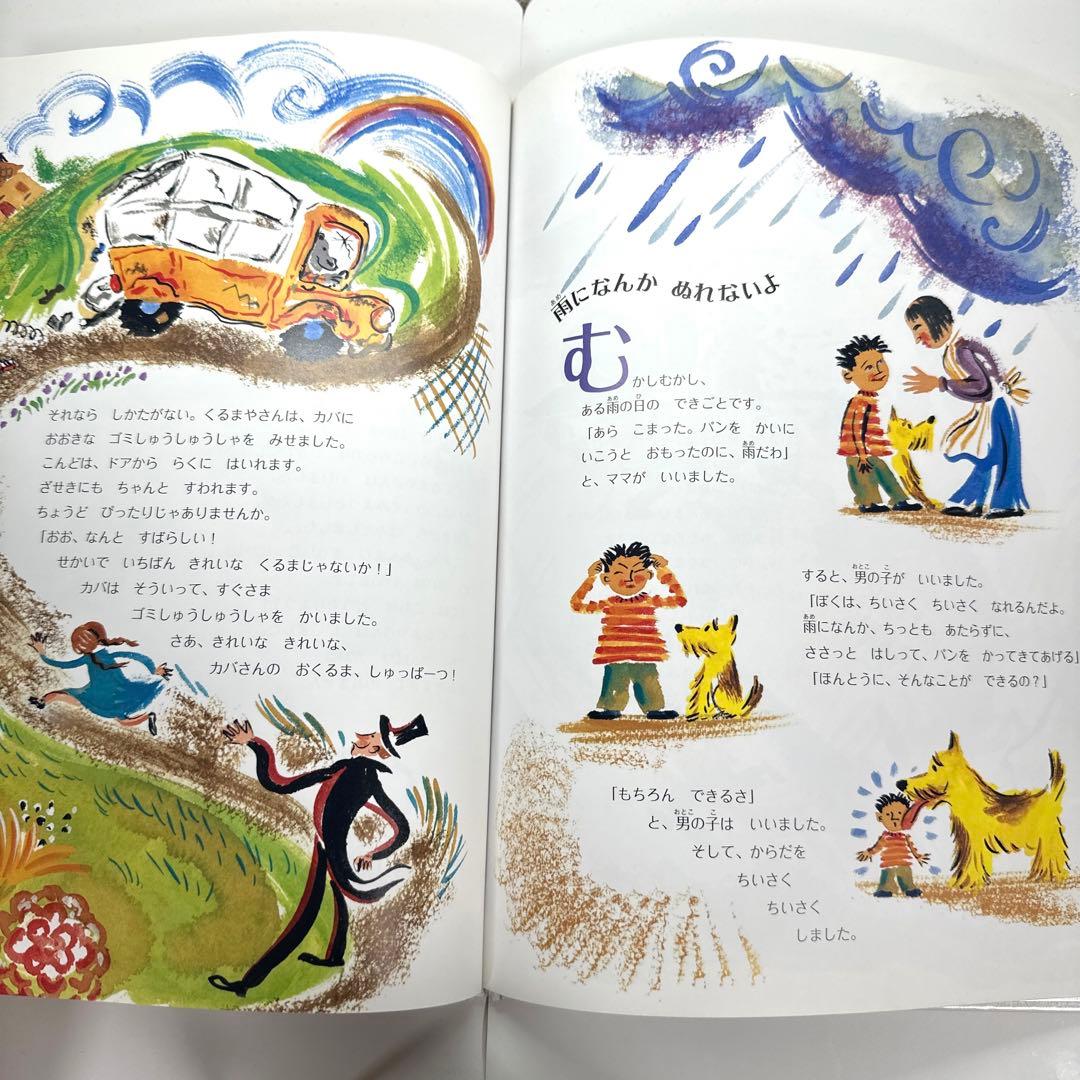 それなら しかたがない。くるまやさんは、カバに
おおきな ゴミしゅうしゅうしゃを みせました。
こんどは、ドアから らくに はいれます。
ざせきにも ちゃんと すわれます。
ちょうど ぴったりじゃありませんか。
「おお、なんと すばらしい！
せかいで いちばん きれいな くるまじゃないか！」
カバは そういって、すぐさま
ゴミしゅうしゅうしゃを かいました。
さあ、きれいな きれいな、
カバさんの おくるま、しゅっぱーつ！
雨になんか ぬれないよ
むかしむかし、
ある雨の日の できごとです。
「あら こまった。パンを かいに
いこうと おもったのに、雨だわ」
と、ママが いいました。
すると、男の子が いいました。
「ぼくは、ちいさく ちいさく なれるんだよ。
雨になんか、ちっとも あたらずに、
ささっと はしって、パンを かってきてあげる」
「ほんとうに、そんなことが できるの？」
「もちろん できるさ」
と、男の子は いいました。
そして、からだを
ちいさく
ちいさく
しました。